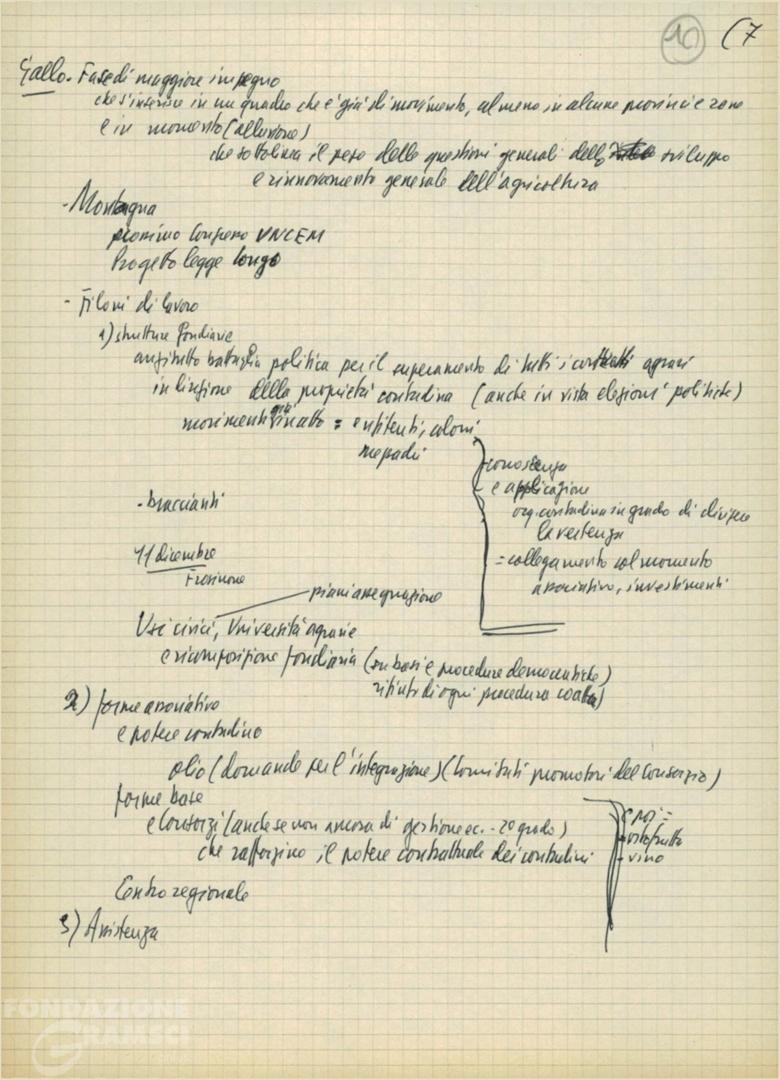 10 (7
Gallo. Fase di maggiore impegno
che s'inserisce in un quadro che è già di movimento, almeno in alcune provincie e zone
e in momento (alluvione)
che sottolinea il peso delle questioni generali dello sviluppo
e rinnovamento generale dell'agricoltura
- Montagna
prossimo Congresso UNCEM
Progetto legge Longo
- Filoni di lavoro
1) strutture fondiarie
anzitutto battaglia politica per il superamento di tutti i contratti agrari
in direzione della proprietà contadina (anche in vista elezioni politiche)
movimenti già in atto = enfiteuti, coloni
mezzadri
conoscenza
e applicazione
org. contadina in grado di dirigere
la vertenza
= collegamento col momento
associativo, investimenti
- braccianti
11 dicembre
Frosinone
piani assegnazione
Usi civici, Università agrarie
e ricomposizione fondiaria (su basi e procedure democratiche)
rifiuto di ogni procedura coatta)
2) forme associative
e potere contadino
olio (domande per l'integrazione) (Comitati promotori del Consorzio)
forme base
e Consorzi (anche se non ancora di gestione ec. - 2º grado)
che rafforzino il potere contrattuale dei contadini
- ortofrutta
- vino
Centro regionale
3) Assistenza
FONDAZIONE
GRAMSCI